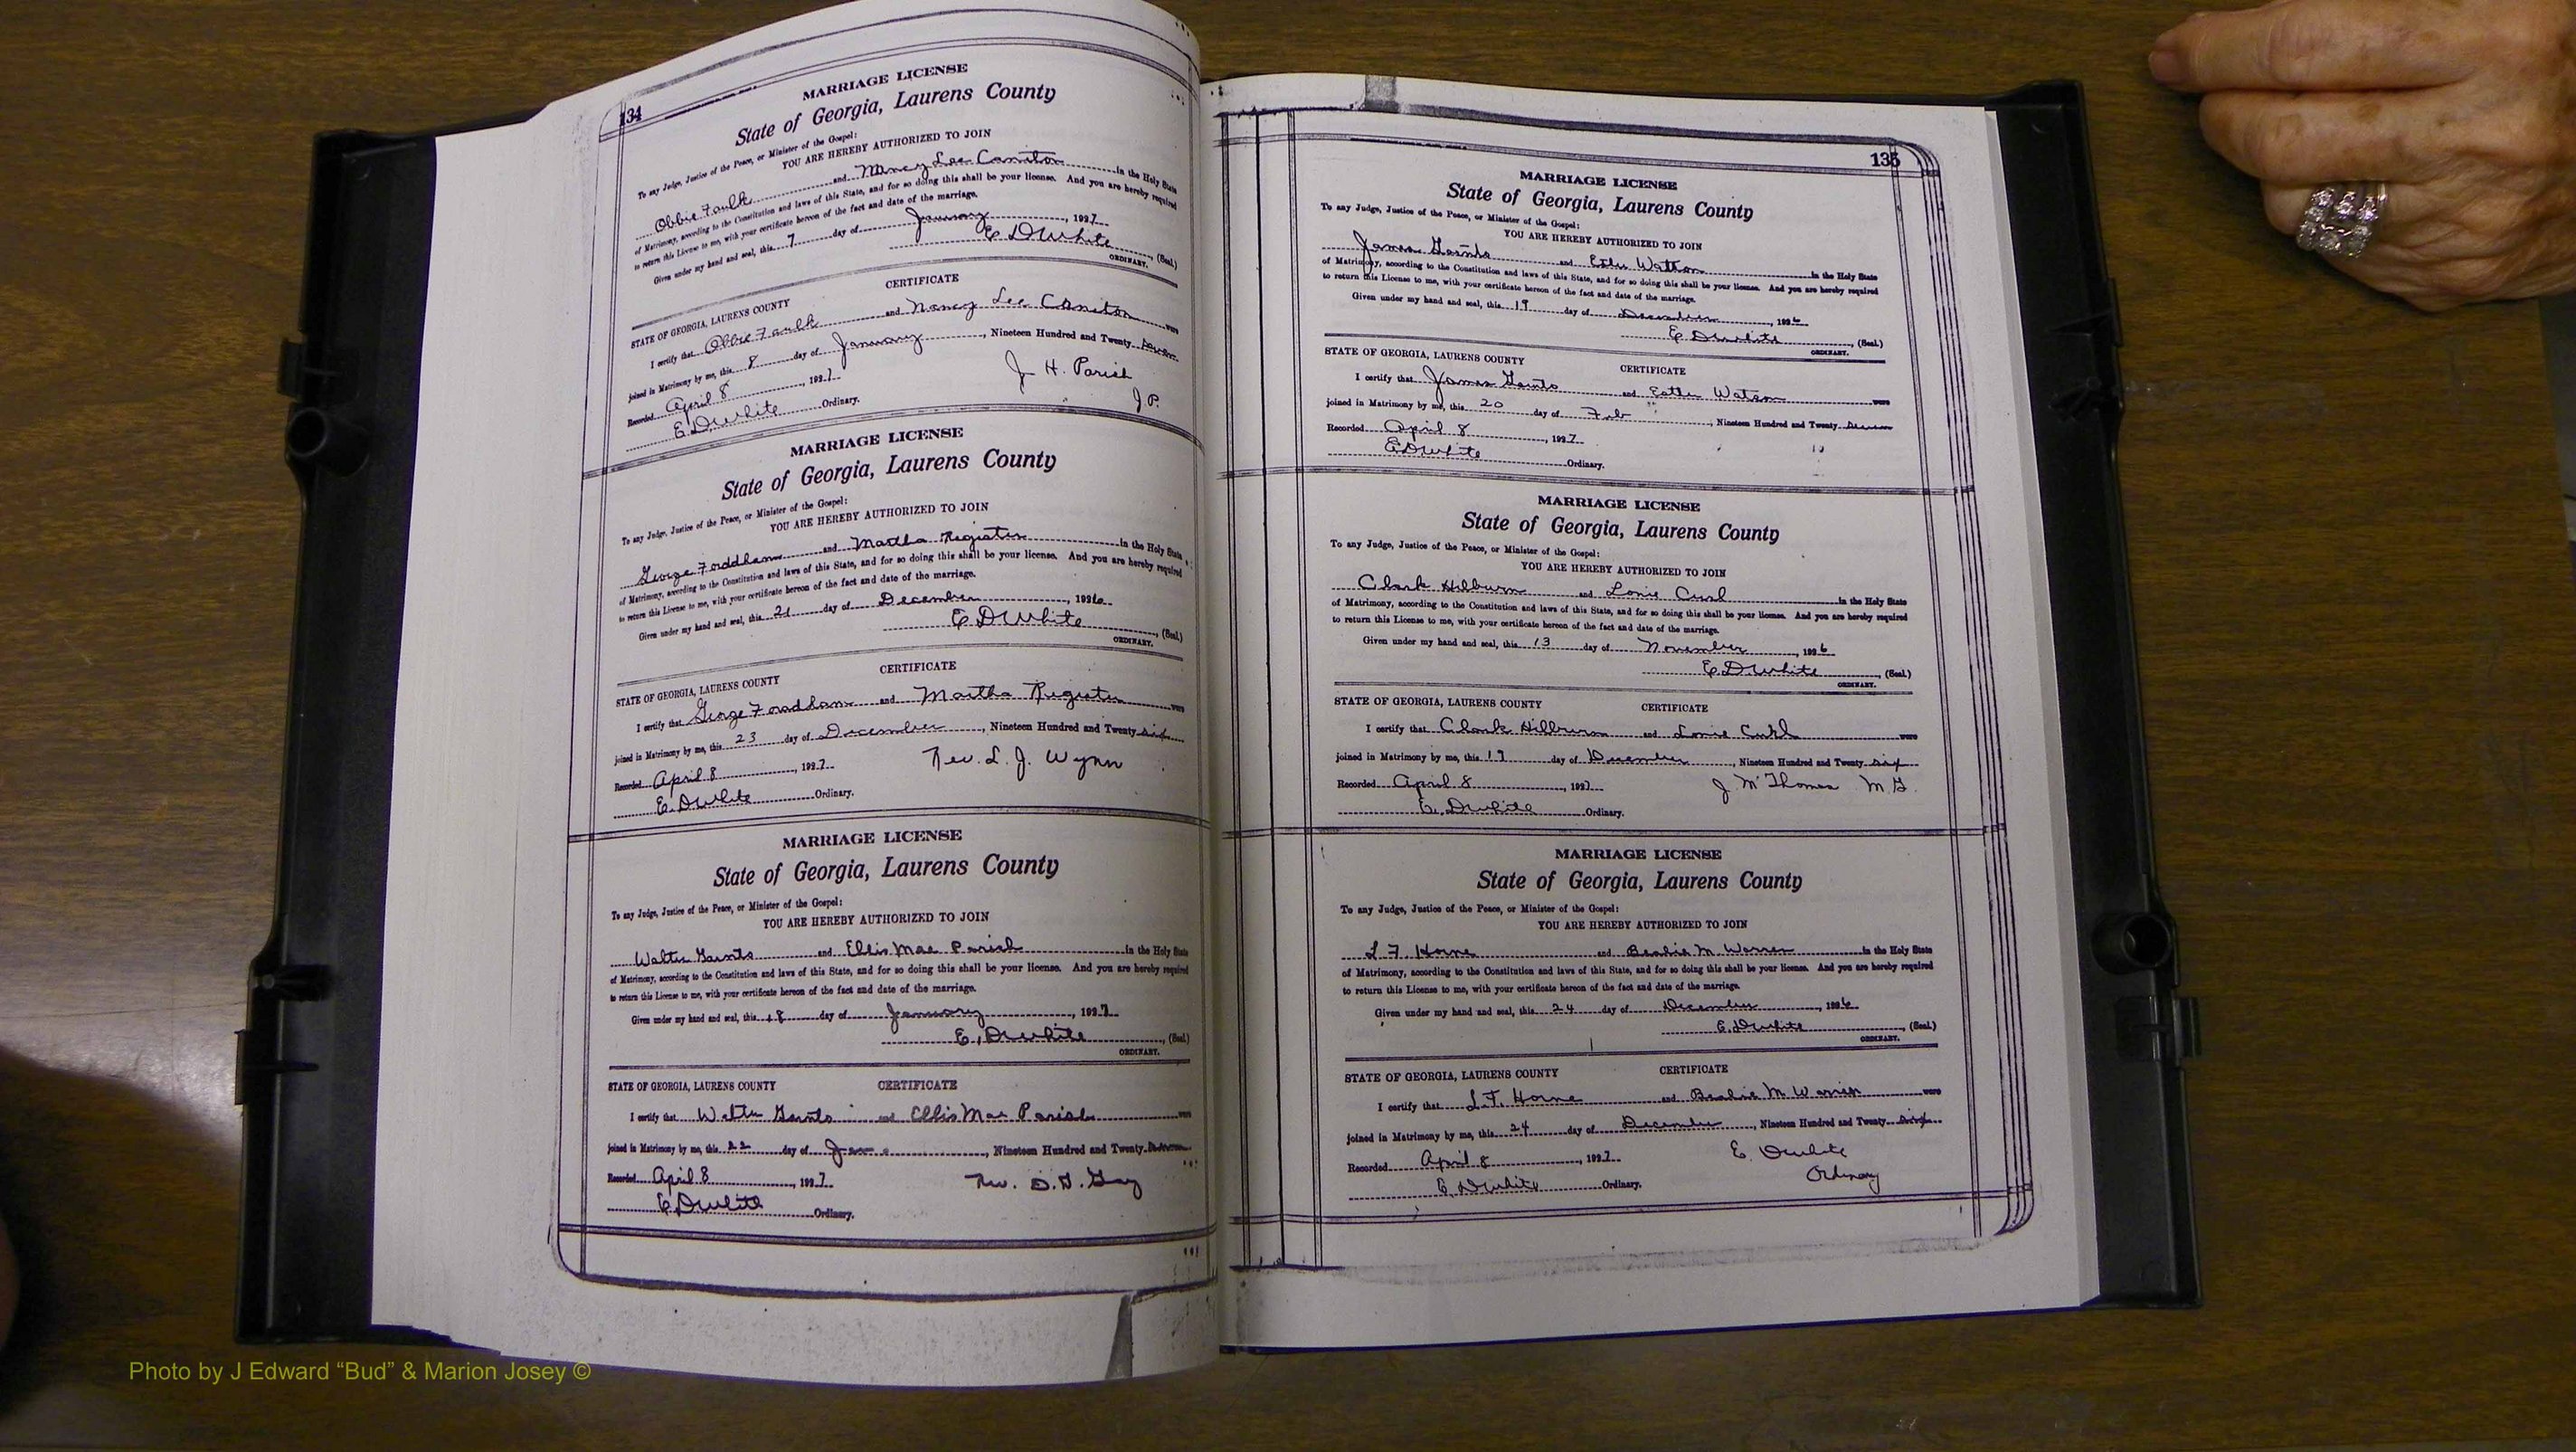 134
MARRIAGE LICENSE
State of Georgia, Laurens County
To any Judge, Justice of the Peace, or Minister of the Gospel:
YOU ARE HEREBY AUTHORIZED TO JOIN
Obbie Faulk and Nancy Lee Caniton in the Holy State
of Matrimony, according to the Constitution and laws of this State, and for so doing this shall be your license. And you are hereby required
to return this License to me, with your certificate hereon of the fact and date of the marriage.
Given under my hand and seal, this 7 day of January, 1927
E D White, (Seal)
ORDINARY.
CERTIFICATE
STATE OF GEORGIA, LAURENS COUNTY
I certify that Obbie Faulk and Nancy Lee Caniton were
joined in Matrimony by me, this 8 day of January, Nineteen Hundred and Twenty seven
Recorded April 8, 1927 J. H. Parish
E. D. White Ordinary. J.P.
MARRIAGE LICENSE
State of Georgia, Laurens County
To any Judge, Justice of the Peace, or Minister of the Gospel:
YOU ARE HEREBY AUTHORIZED TO JOIN
George Forddham and Martha Register in the Holy State
of Matrimony, according to the Constitution and laws of this State, and for so doing this shall be your license. And you are hereby required
to return this License to me, with your certificate hereon of the fact and date of the marriage.
Given under my hand and seal, this 21 day of December, 1926
E D White, (Seal)
ORDINARY.
CERTIFICATE
STATE OF GEORGIA, LAURENS COUNTY
I certify that George Fordham and Martha Register were
joined in Matrimony by me, this 23 day of December, Nineteen Hundred and Twenty six
Recorded April 8, 1927 Rev. L. J. Wynn
E. D White Ordinary.
MARRIAGE LICENSE
State of Georgia, Laurens County
To any Judge, Justice of the Peace, or Minister of the Gospel:
YOU ARE HEREBY AUTHORIZED TO JOIN
Walter and Ellis Mae Parish in the Holy State
of Matrimony, according to the Constitution and laws of this State, and for so doing this shall be your license. And you are hereby required
to return this License to me, with your certificate hereon of the fact and date of the marriage.
Given under my hand and seal, this 18 day of January, 1927
E. D White, (Seal)
ORDINARY.
STATE OF GEORGIA, LAURENS COUNTY CERTIFICATE
I certify that Walter and Ellis Mae Parish were
joined in Matrimony by me, this 22 day of Jan, Nineteen Hundred and Twenty seven
Recorded April 8, 1927 Rev. D. H. Gay
E. D White Ordinary.
135
MARRIAGE LICENSE
State of Georgia, Laurens County
To any Judge, Justice of the Peace, or Minister of the Gospel:
YOU ARE HEREBY AUTHORIZED TO JOIN
James and Watson in the Holy State
of Matrimony, according to the Constitution and laws of this State, and for so doing this shall be your license. And you are hereby required
to return this License to me, with your certificate hereon of the fact and date of the marriage.
Given under my hand and seal, this 19 day of December, 1926
E. D White, (Seal)
ORDINARY.
STATE OF GEORGIA, LAURENS COUNTY CERTIFICATE
I certify that James and Esther Watson were
joined in Matrimony by me, this 20 day of Feb, Nineteen Hundred and Twenty seven
Recorded April 8, 1927
E D White Ordinary.
MARRIAGE LICENSE
State of Georgia, Laurens County
To any Judge, Justice of the Peace, or Minister of the Gospel:
YOU ARE HEREBY AUTHORIZED TO JOIN
Clark Hilburn and Lonie Curl in the Holy State
of Matrimony, according to the Constitution and laws of this State, and for so doing this shall be your license. And you are hereby required
to return this License to me, with your certificate hereon of the fact and date of the marriage.
Given under my hand and seal, this 13 day of November, 1926
E. D White, (Seal)
ORDINARY.
STATE OF GEORGIA, LAURENS COUNTY CERTIFICATE
I certify that Clark Hilburn and Lonie Curl were
joined in Matrimony by me, this 19 day of December, Nineteen Hundred and Twenty six
Recorded April 8, 1927 J. M Thomas M G.
E. D White Ordinary.
MARRIAGE LICENSE
State of Georgia, Laurens County
To any Judge, Justice of the Peace, or Minister of the Gospel:
YOU ARE HEREBY AUTHORIZED TO JOIN
L F. Horne and M. Warren in the Holy State
of Matrimony, according to the Constitution and laws of this State, and for so doing this shall be your license. And you are hereby required
to return this License to me, with your certificate hereon of the fact and date of the marriage.
Given under my hand and seal, this 24 day of December, 1926
E. D White, (Seal)
ORDINARY.
STATE OF GEORGIA, LAURENS COUNTY CERTIFICATE
I certify that L. F. Horne and M. Warren were
joined in Matrimony by me, this 24 day of December, Nineteen Hundred and Twenty six
Recorded April 8, 1927 E. D White
E. D White Ordinary. Ordinary
Photo by J Edward “Bud” & Marion Josey ©